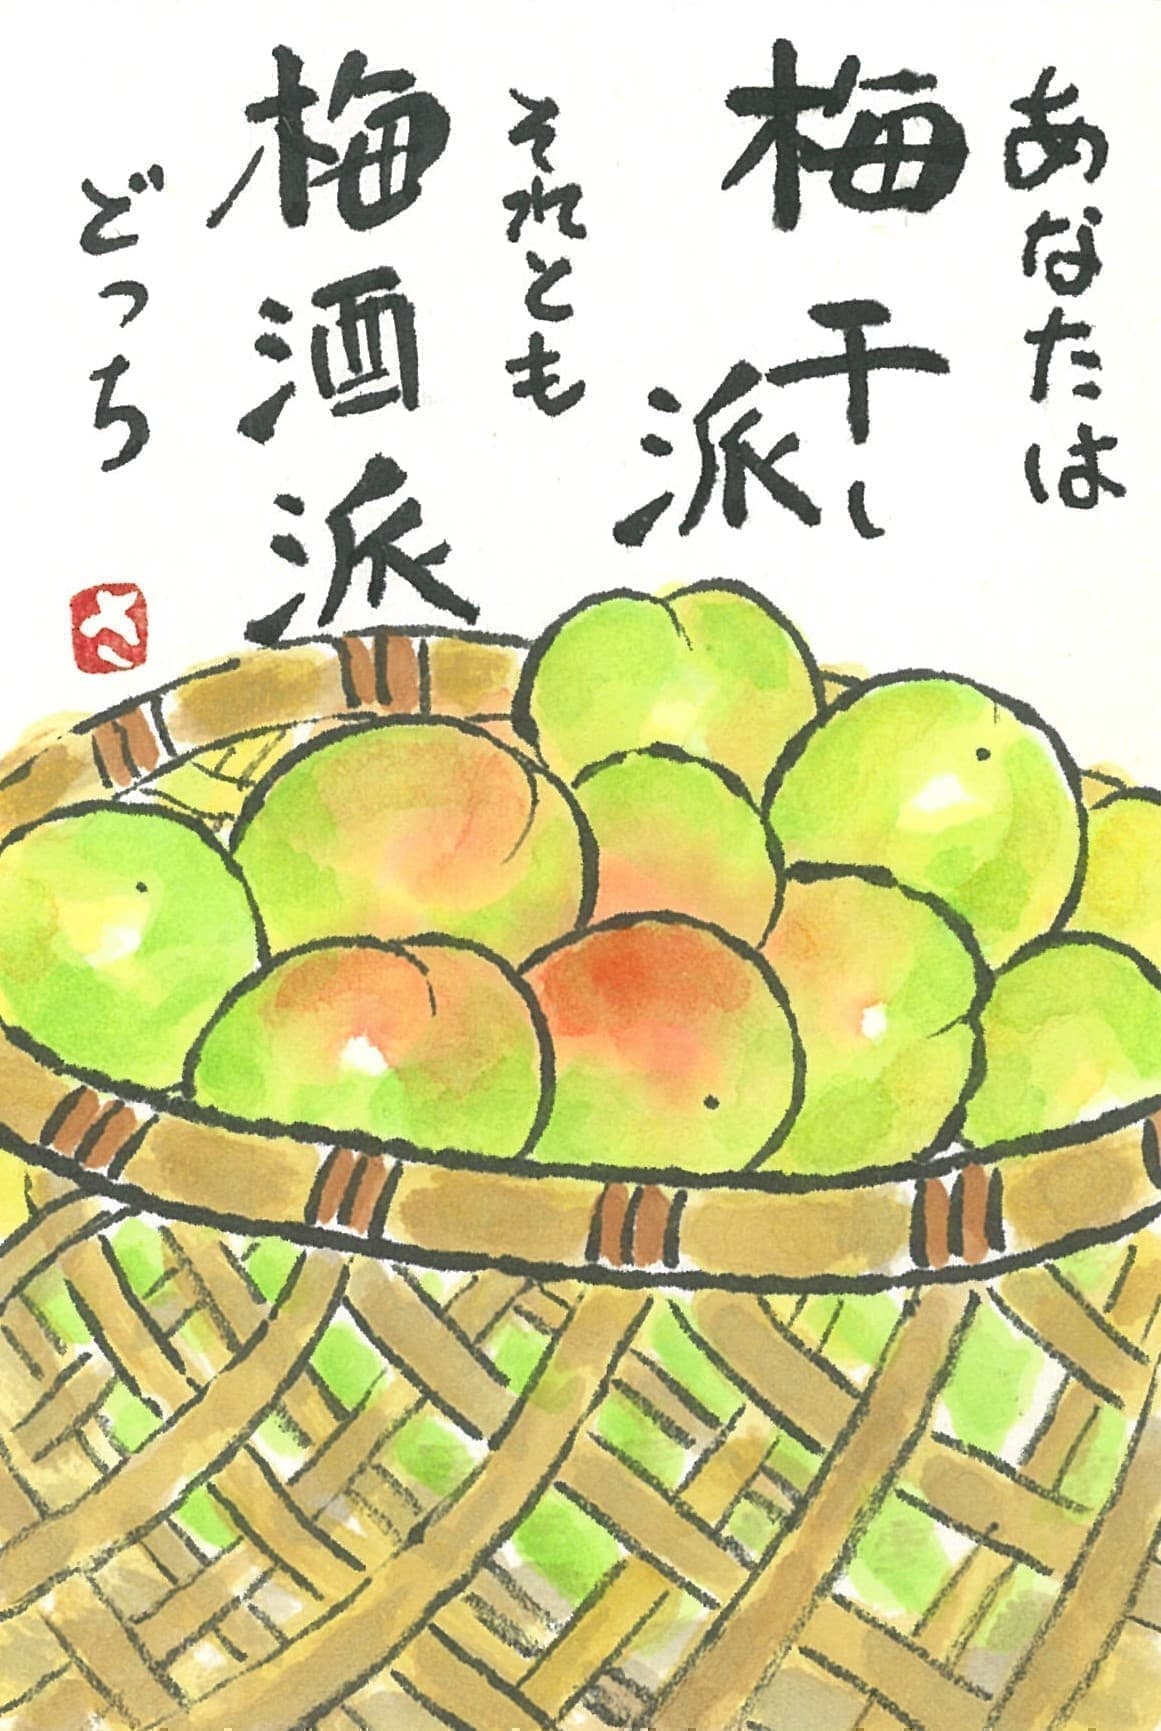 あなたは
梅干し
派
それとも
梅酒派
どっち
さ